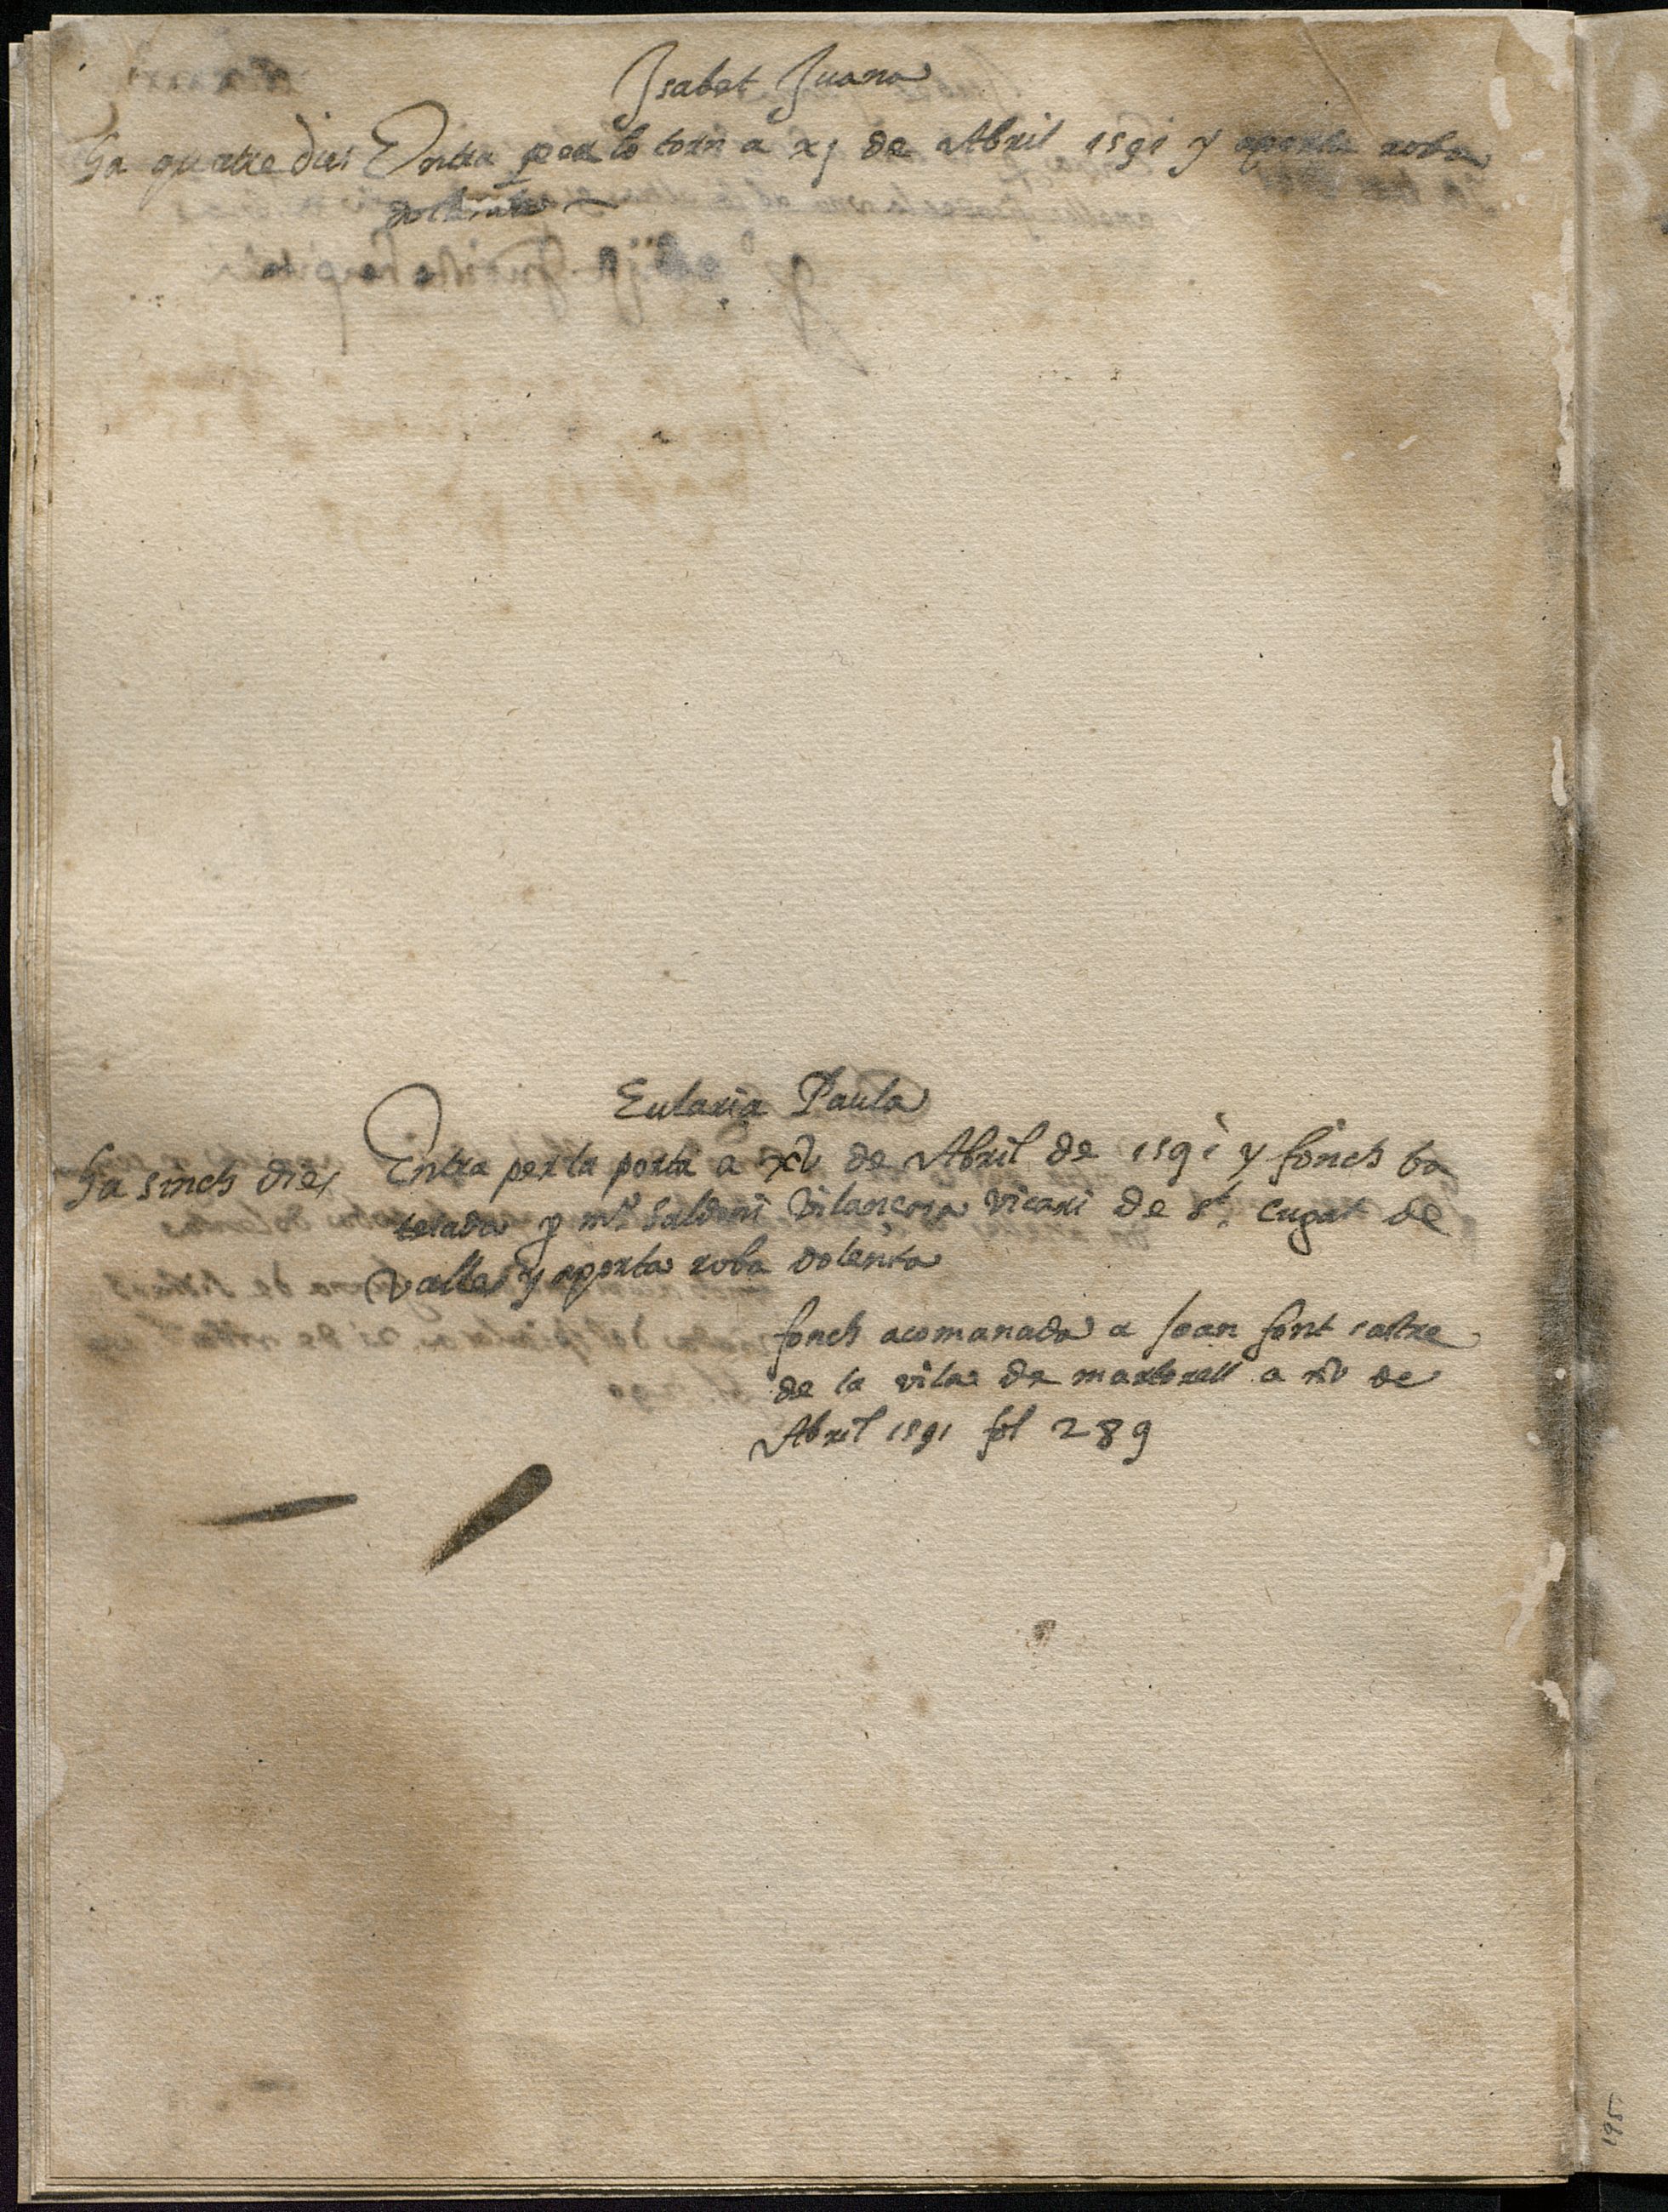 Isabet Juana
Ha quatre dies Entra per lo torn a xj de Abril 1591 y aporta roba
dolenta
Eularia Paula
Ha sinch dies Entra per la porta a xv de Abril de 1591 y fonch ba
teiada p mº Saldoni Vilansosa vicari de St. Cugat de
Valles y aporta roba dolenta
fonch acomanada a Joan font sastre
de la vila de martorell a xv de
Abril 1591 fol 289
195